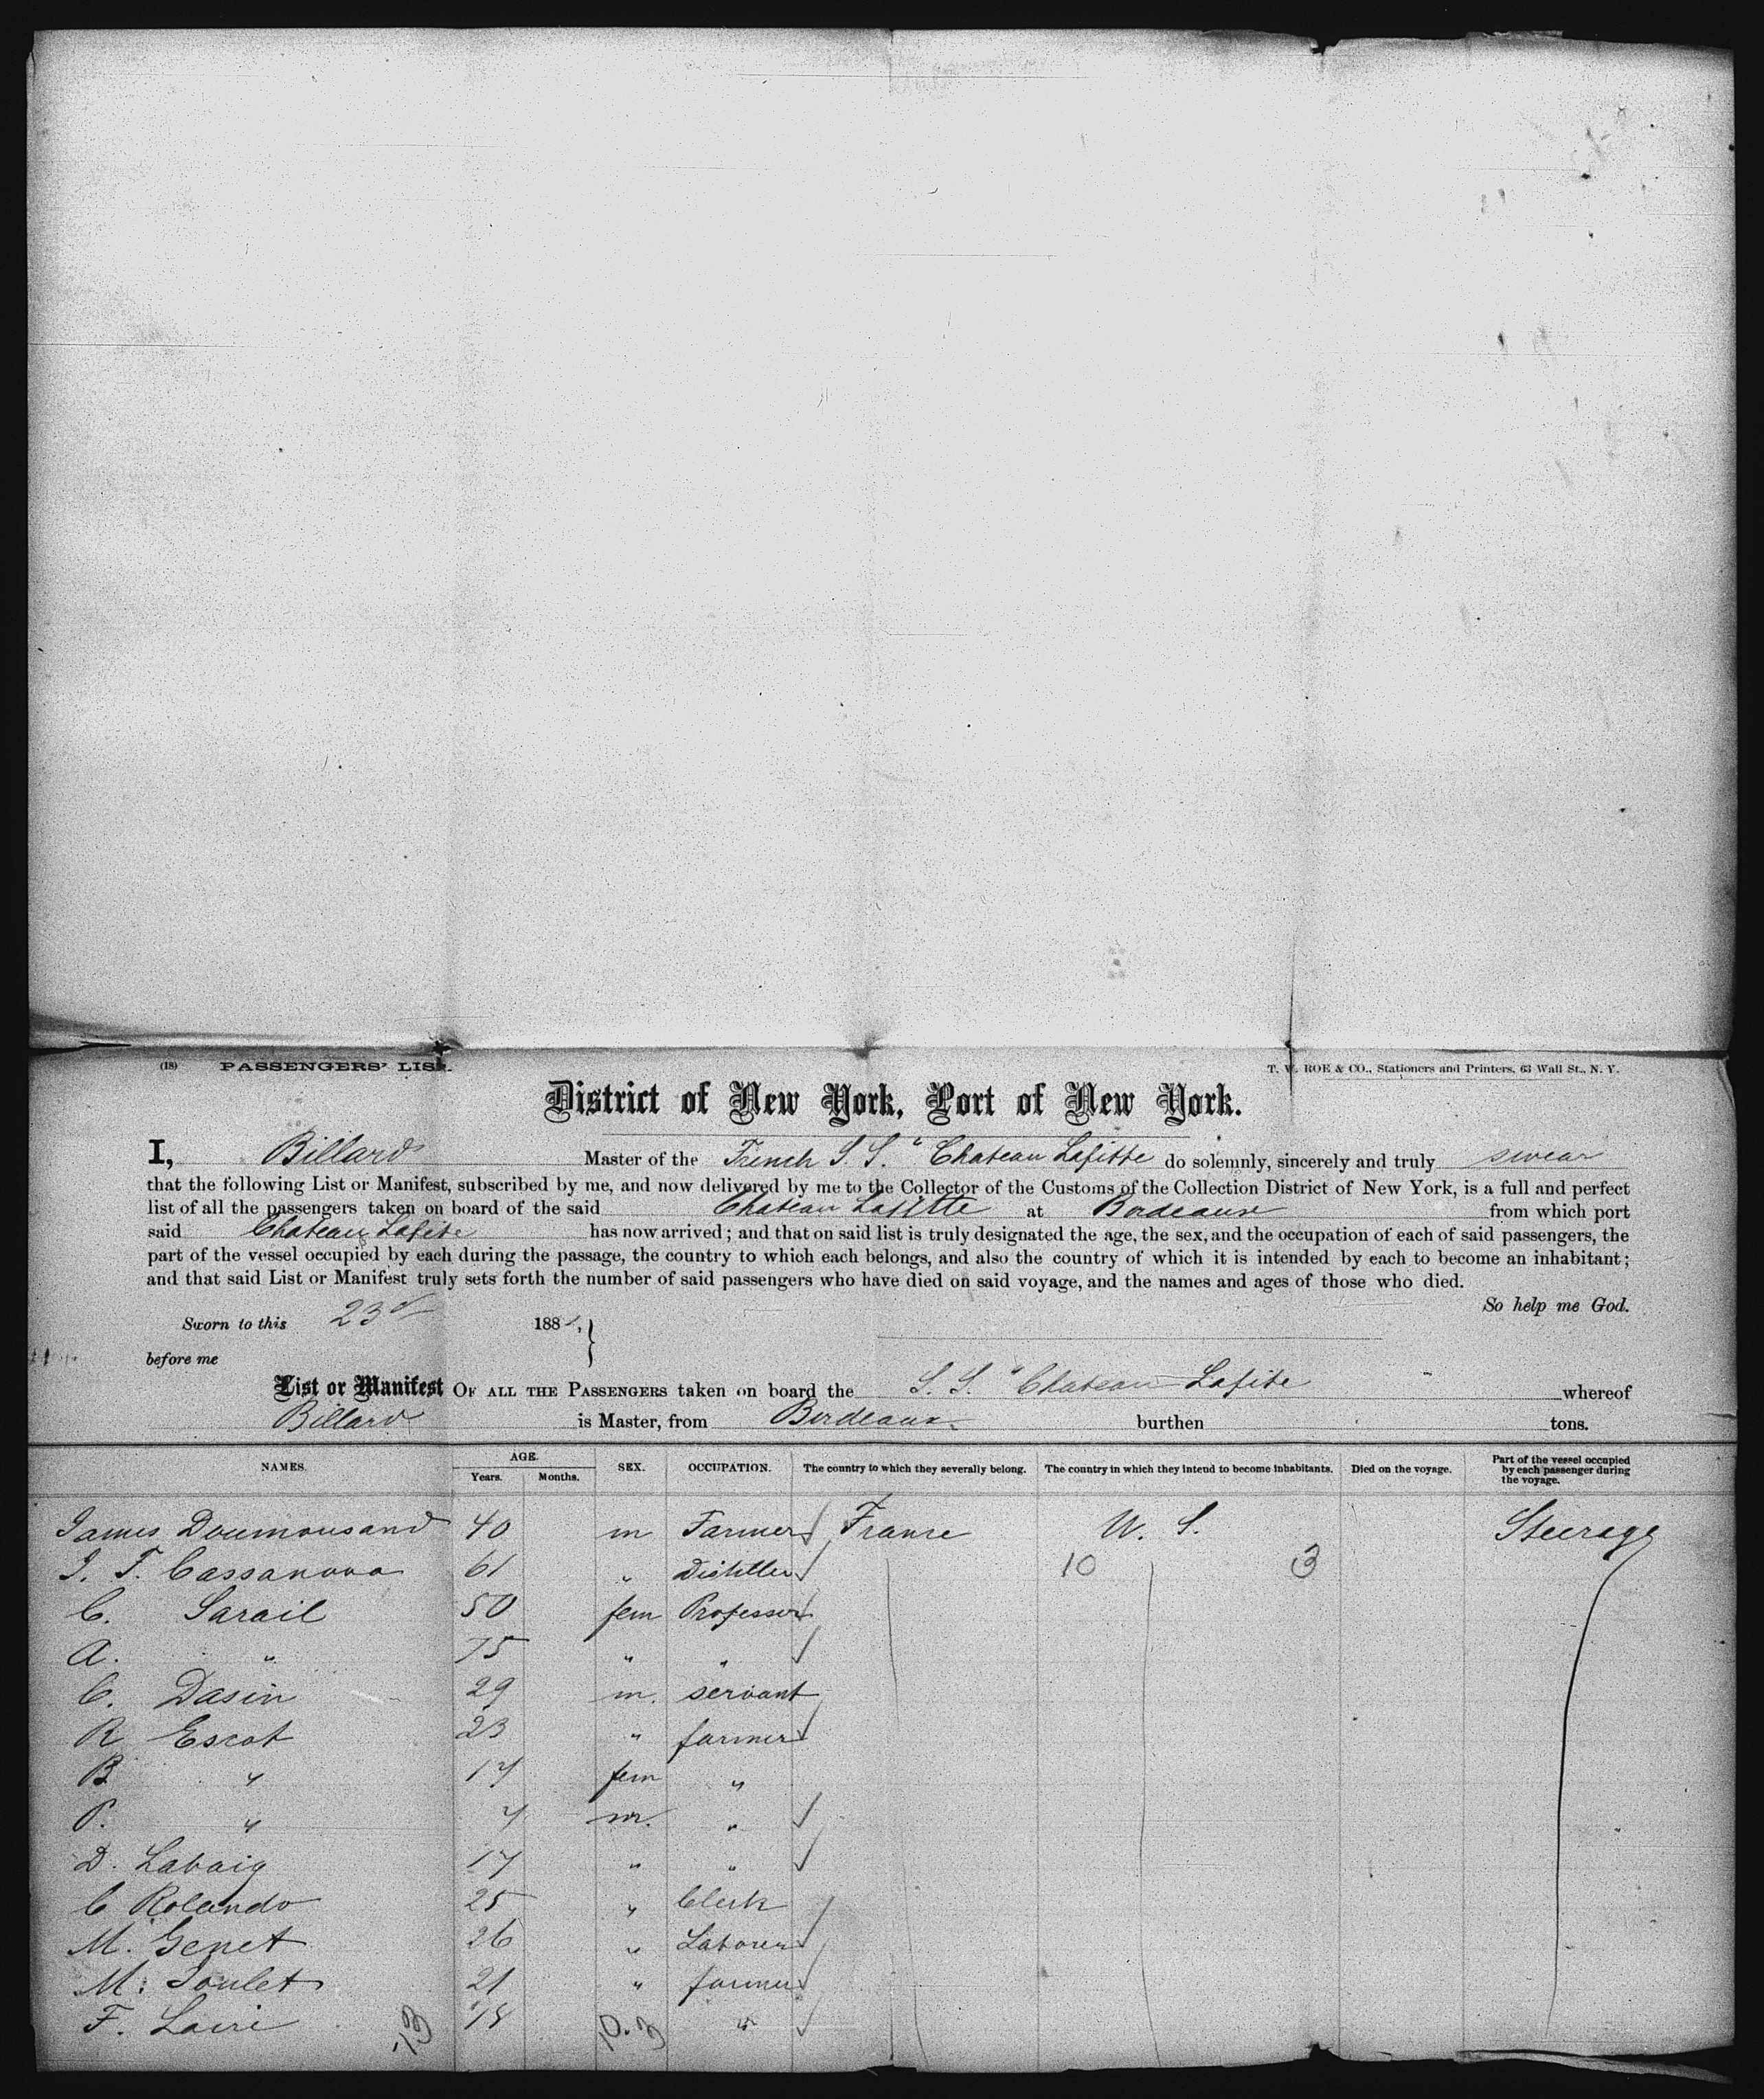 (18) PASSENGERS' LIST. T. W. ROE & CO., Stationers and Printers, 63 Wall St., N. Y.
District of New York, Port of New York.
I, Billard Master of the French S. S. " Chateau Lafitte do solemnly, sincerely and truly swear
that the following List or Manifest, subscribed by me, and now delivered by me to the Collector of the Customs of the Collection District of New York, is a full and perfect
list of all the passengers taken on board of the said Chateau Lafitte at Bordeaux from which port
said Chateau Lafite has now arrived; and that on said list is truly designated the age, the sex, and the occupation of each of said passengers, the
part of the vessel occupied by each during the passage, the country to which each belongs, and also the country of which it is intended by each to become an inhabitant;
and that said List or Manifest truly sets forth the number of said passengers who have died on said voyage, and the names and ages of those who died.
So help me God.
Sworn to this 23d 188
before me
List or Manifest OF ALL THE PASSENGERS taken on board the S. S. " Chateau Lafite whereof
Billard is Master, from Bordeaux burthen tons.
NAMES. AGE. Years. Months. SEX. OCCUPATION. The country to which they severally belong. The country in which they intend to become inhabitants. Died on the voyage. Part of the vessel occupied by each passenger during the voyage.
James Doumousand 40 m Farmer France U. S. Steerage
J. T. Cassanova 61 " Distiller 10 3
C. Sarail 50 fem Professor
A. " 75 " "
C. Dasin 29 m. servant
R Escot 23 " farmer
B " 17 fem "
P. " 7 m. "
D. Labaig 17 " "
C Rolando 25 " Clerk
M. Genet 26 " Laborer
M. Soulet 21 " farmer
F. Loiri 18 "
13 10.3